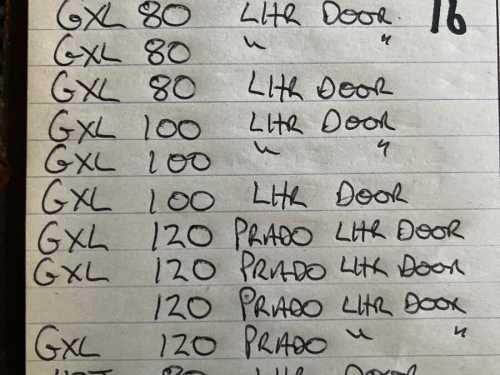 GXL 80 LHR DOOR 16
GXL 80 " "
GXL 80 LHR DOOR
GXL 100 LHR DOOR
GXL 100 " "
GXL 100 LHR DOOR
GXL 120 PRADO LHR DOOR
GXL 120 PRADO LHR DOOR
120 PRADO LHR DOOR
GXL 120 PRADO " "
80 LHR DOOR